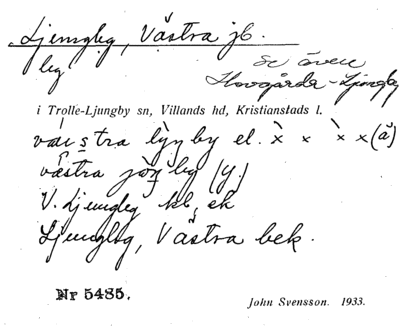 Ljungby, Västra jb.
by
Se även
Hovgårda-Ljungby
i Trolle-Ljungby sn, Villands hd, Kristianstads l.
västra lyŋby el. x x x x (å)
västra jöŋby (y.)
V. Ljungby kb, ek
Ljungby, Västra bek.
Nr 5485.
John Svensson. 1933.